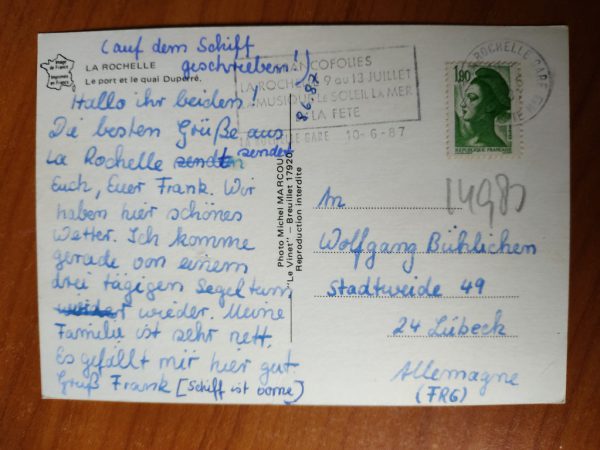 Image
de France
LA ROCHELLE
Le port et le quai Duperré.
(auf dem Schiff
geschrieben!)
8.6.87
Hallo ihr beiden!
Die besten Grüße aus
La Rochelle sendet
Euch, Euer Frank. Wir
haben hier schönes
Wetter. Ich komme
gerade von einem
drei tägigen Segelturn
wieder. Meine
Familie ist sehr nett.
Es gefällt mir hier gut.
Gruß Frank [Schiff ist vorne)
FRANCOFOLIES
LA ROCHELLE 9 au 13 JUILLET
LA MUSIQUE LE SOLEIL LA MER
LA FETE
LA ROCHELLE-GARE 10-6-87
LA ROCHELLE GARE
1,90
REPUBLIQUE FRANCAISE
Photo Michel MARCOU
"Le Vinet" – Breuillet 17920
Reproduction interdite
An
Wolfgang Bühlichen
Stadtweide 49
24 Lübeck
Allemagne
(FRG)